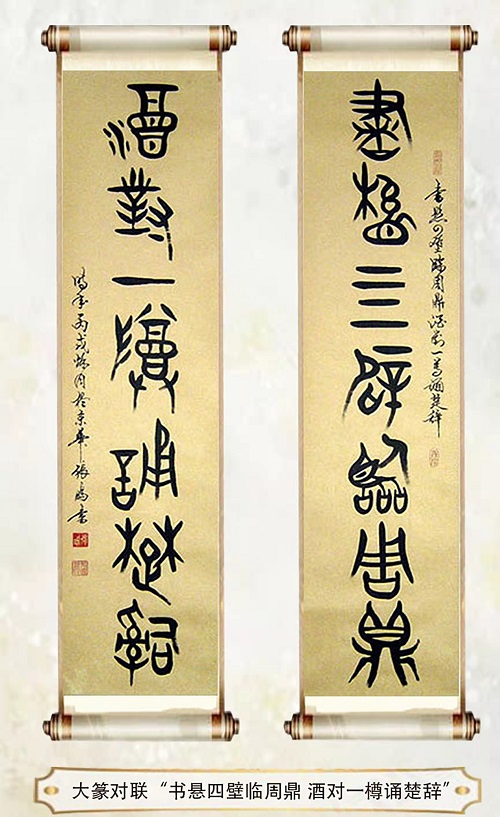 書懸四壁臨周鼎
書懸四壁臨周鼎酒對一尊誦楚辭
酒對一樽誦楚辭
丙戌秋月於京華張書
大篆对联“书悬四壁临周鼎 酒对一樽诵楚辞”